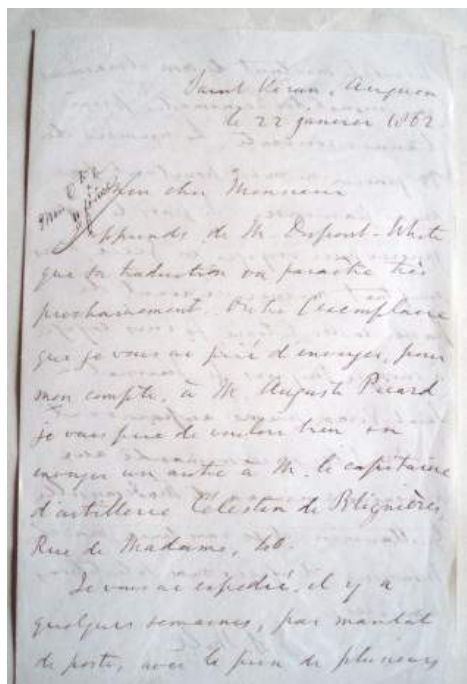 Saint Véran, Avignon
le 22 janvier 1862
Mon cher Monsieur
J'apprends de M. Dupont-White
que sa traduction va paraître très
prochainement. Outre l'exemplaire
que je vous ai prié d'envoyer, pour
mon compte, à M. Auguste Picard
je vous prie de vouloir bien en
envoyer un autre à M. le capitaine
d'artillerie Célestin de Blignières,
Rue de Madame, 40.
Je vous ai expédié, il y a
quelques semaines, par mandat
de poste, avec le prix de plusieurs